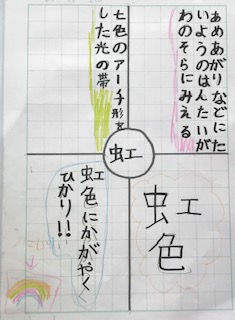 あめあがりなどにた
いようのはんたいが
わのそらにみえる
七色のアーチ形を
した光の帯
虹
虹色
虹色にかがやく
ひかり!!